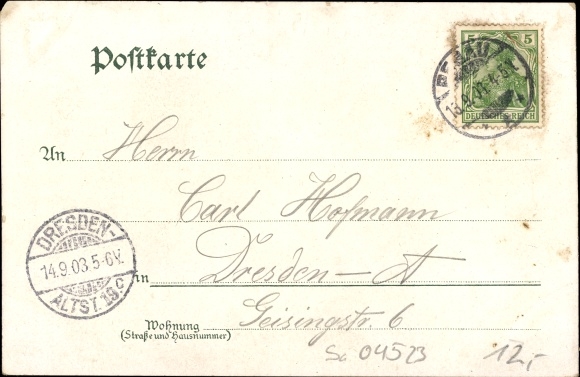 Postkarte
5 5
DEUTSCHES REICH
DESSAU
An Herrn
Carl Hofmann
DRESDEN-
14.9.03.5-6V.
ALTST. 19.c
in Dresden-A
Geisingstr. 6
Wohnung
(Straße und Hausnummer)
Sc 04523 12,-